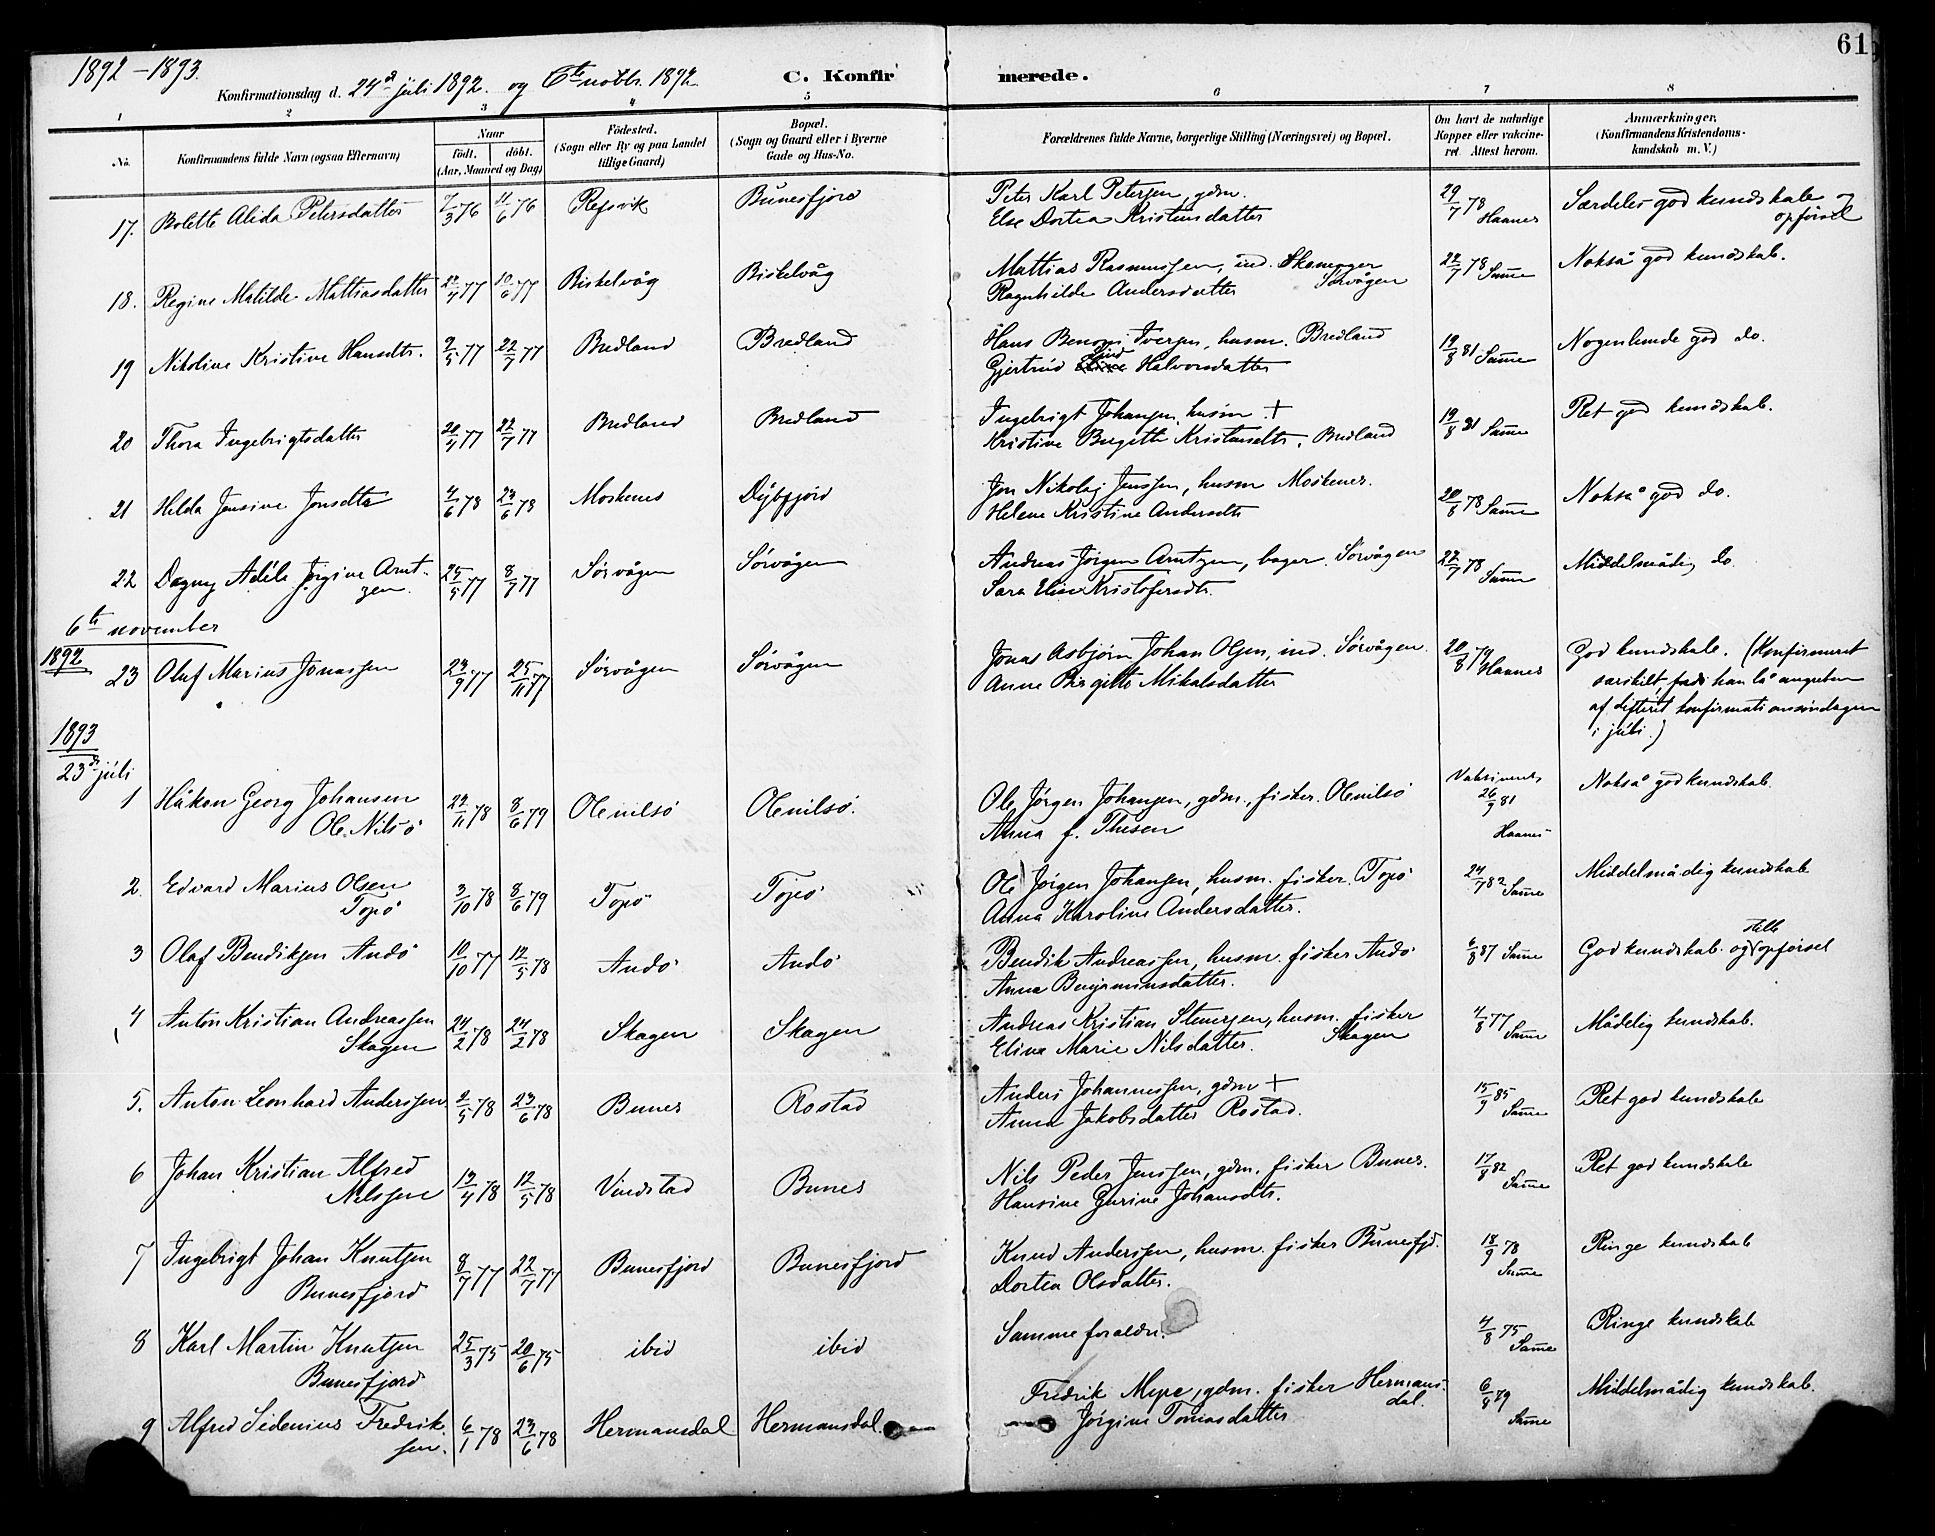 61
1892-1893.
Konfirmationsdag d. 24de júli 1892. og 6te novbr. 1892.
C. Konfirmerede.
1 2 3 4 5 6 7 8
No.
Konfirmandens fulde Navn (ogsaa Efternavn)
Naar
født. døbt.
(Aar, Maaned og Dag)
Fødested.
(Sogn eller By og paa Landet
tillige Gaard)
Bopæl.
(Sogn og Gaard eller i Byerne
Gade og Hus-No.
Forældrenes fulde Navne, borgerlige Stilling (Næringsvei) og Bopæl.
Om havt de naturlige
Kopper eller vakcine-
ret Attest herom.
Anmærkninger.
(Konfirmandens Kristendoms-
kundskab m. V.)
17. Bolette Alida Petersdatter 7/3 76 11/6 76 Refsvik Bunesfjord Peter Karl Petersen, gdm. 29/7 78 Særdeles god kundskab og
Else Dortea Kristiansdatter Haanes opførsel
18. Regine Matilde Mattiasdatter 10/6 77 Biskelvåg Biskelvåg Mattias Rasmussen, ind. 22/7 78 Same Nokså god kundskab.
Ragnhilde Andersdatter Sørvågen
19 Nikoline Kristine Hansdtr. 2/5 77 22/7 77 Bredland Bredland Hans Benoni Iversen, husm. Bredland 19/8 81 Same Nogenlunde god do.
Gjertrúd Halvorsdatter
20 Thora Ingebrigtsdatter 20/4 77 22/7 77 Bredland Bredland Ingebrigt Johansen husm + 19/8 81 Same Ret god kundskab.
Kristine Birgitte Kristensdtr. Bredland
21 Helda Jensine Jonsdtr 4/6 78 23/6 78 Moskenes Dýbfjord Jon Nikolaj Jenssen, husm Moskenes. 20/8 78 Same Nokså god do.
Helene Kristine Andersdtr
22 Dagny Adéle Jørgine Arnt- 25/5 77 8/7 77 Sørvågen Sørvågen Andreas Jørgen Arntzen, bager. Sørvågen 22/7 78 Same Middelmådig do.
zen. Sara Elise Kristofersdtr.
6te november
1892
23 Oluf Marius Jonassen 23/9 77 25/11 77 Sørvågen Sørvågen Jonas Asbjørn Johan Olsen, ind. Sørvågen. 20/8 79 Haanes God kundskab. (Konfirmeret
Anne Birgitte Mikalsdatter særskilt, fordi han lå angreben
af difterit konfirmationsøndagen
i júli.)
1893
23de júli
1 Håkon Georg Johansen 22/11 78 8/6 79 Olenilsø Olenilsø. Ole Jørgen Johansen, gdm. fisker. Olenilsø 26/9 81 Nokså god kundskab.
Ole Nilsø Anna f. Thisen Haanes
2. Edvard Marius Olsen 3/10 78 8/6 79 Topø Topø Ole Jørgen Johansen, husm. fisker. Topø 24/7 82 Same Middelmådig kundskab
Topø Anna Karoline Andersdatter.
3 Olaf Bendiksen Andø 10/10 77 12/5 78 Andø Andø Bendik Andreassen, husm. fisker Andø 6/8 87 Same God kundskab og opførsel
Anna Benjaminsdatter.
4 Anton Kristian Andreassen 24/2 78 24/2 78 Skagen Skagen Andreas Kristian Steensen, husm. fisker 4/8 77 Same Mådelig kundskab.
Skagen Eline Marie Nilsdatter. Skagen
5. Anton Leonhard Anderssen 2/5 78 23/6 78 Bunes Rostad Anders Johannessen, gdm + 15/9 85 Same Ret god kundskab
Anna Jakobsdatter Rostad.
6 Johan Kristian Alfred 13/4 78 12/5 78 Vindstad Bunes Nils Peder Jenssen, gdm. fisker Bunes. 17/8 82 Same Ret god kundskab
Nilssen Hansine Gurine Johansdtr.
7 Ingebrigt Johan Knutsen 8/7 77 22/7 77 Bunesfjord Bunesfjord Knud Anderssen, husm. fisker Bunesfjd. 18/9 78 Same Ringe kundskab
Bunesfjord Dortea Olsdatter.
8 Karl Martin Knutsen 25/3 75 20/6 75 ibid ibid Samme forældre. 4/8 75 Same Ringe kundskab
Bunesfjord
9 Alfred Sedenius Fredrik- 6/1 78 23/6 78 Hermansdal Hermansdal Fredrik Mepe, gdm. fisker Hermans- 6/8 79 Same Middelmådig kundskab.
sen. Jørgine Tomasdatter dal.